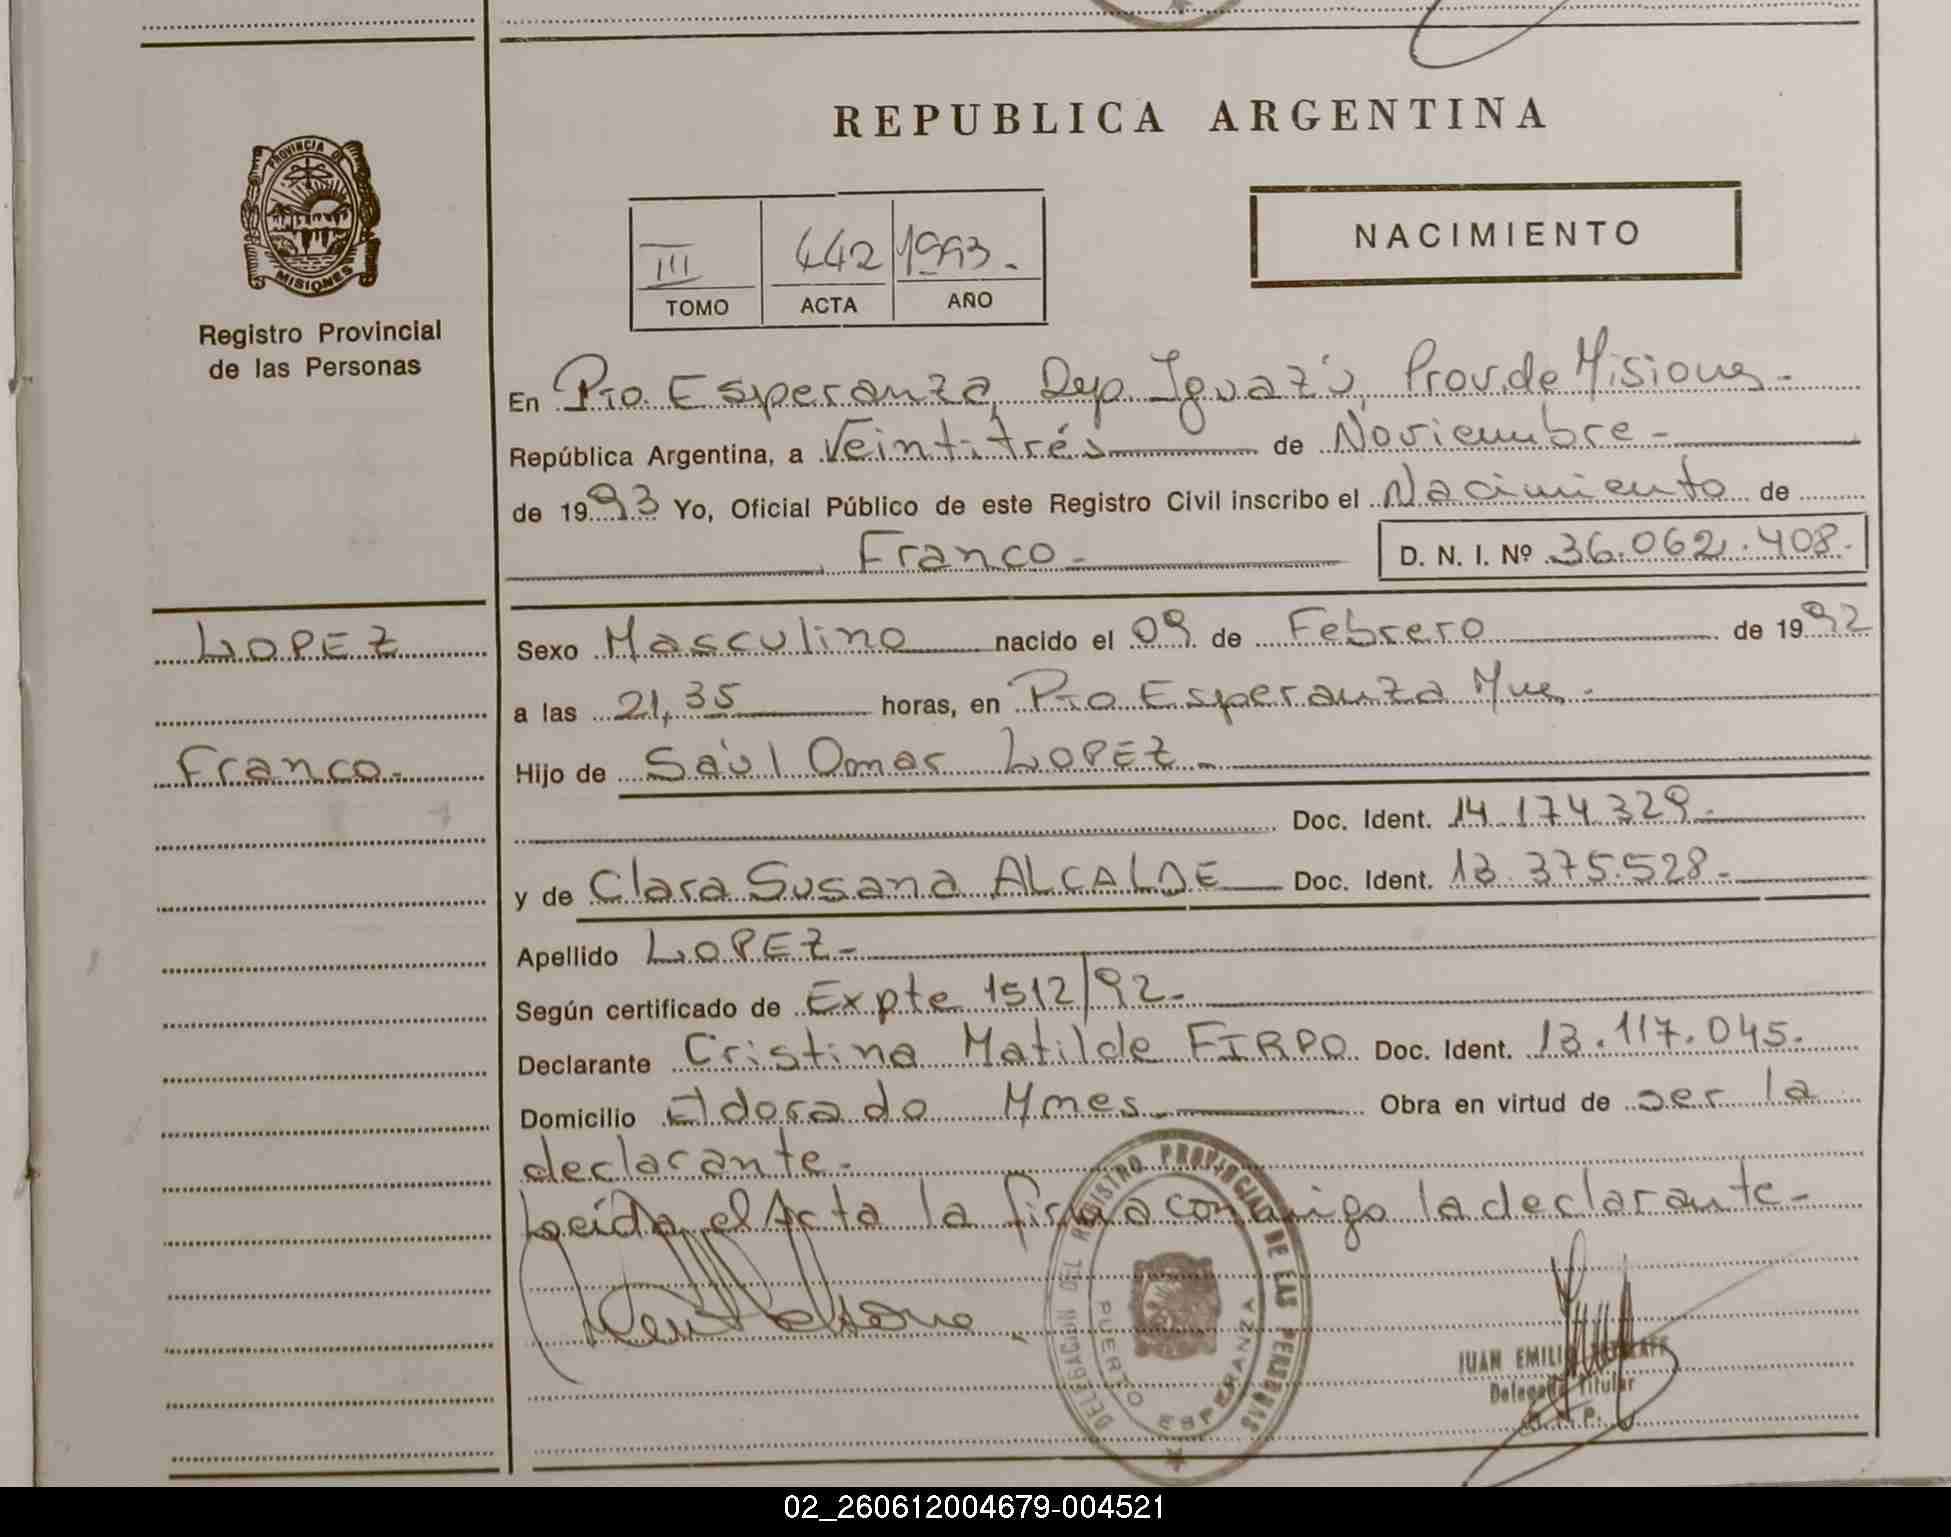 REPUBLICA ARGENTINA
PROVINCIA DE
MISIONES
Registro Provincial
de las Personas
III 442 1993.
TOMO ACTA AÑO
NACIMIENTO
En Pto. Esperanza, Dep. Iguazú, Prov. de Misiones.-
República Argentina, a Veintitrés de Noviembre-
de 1993 Yo, Oficial Público de este Registro Civil inscribo el Nacimiento de
Franco.- D. N. I. Nº 36.062.408.-
LOPEZ
Franco.-
Sexo Masculino nacido el 09 de Febrero de 1992
a las 21,35 horas, en Pto Esperanza Mnes.-
Hijo de Saúl Omar LOPEZ.-
Doc. Ident. 14.174.329.-
y de Clara Susana ALCALDE Doc. Ident. 13.375.528.-
Apellido LOPEZ.-
Según certificado de Expte 1512/92.-
Declarante Cristina Matilde FIRPO Doc. Ident. 13.117.045.
Domicilio Eldorado Mnes.- Obra en virtud de ser la
declarante.-
Leída el Acta la firma conmigo la declarante.-
DELEGACION DEL REGISTRO PROVINCIAL DE LAS PERSONAS
PUERTO ESPERANZA
JUAN EMILIO
Delegado Titular
02_260612004679-004521